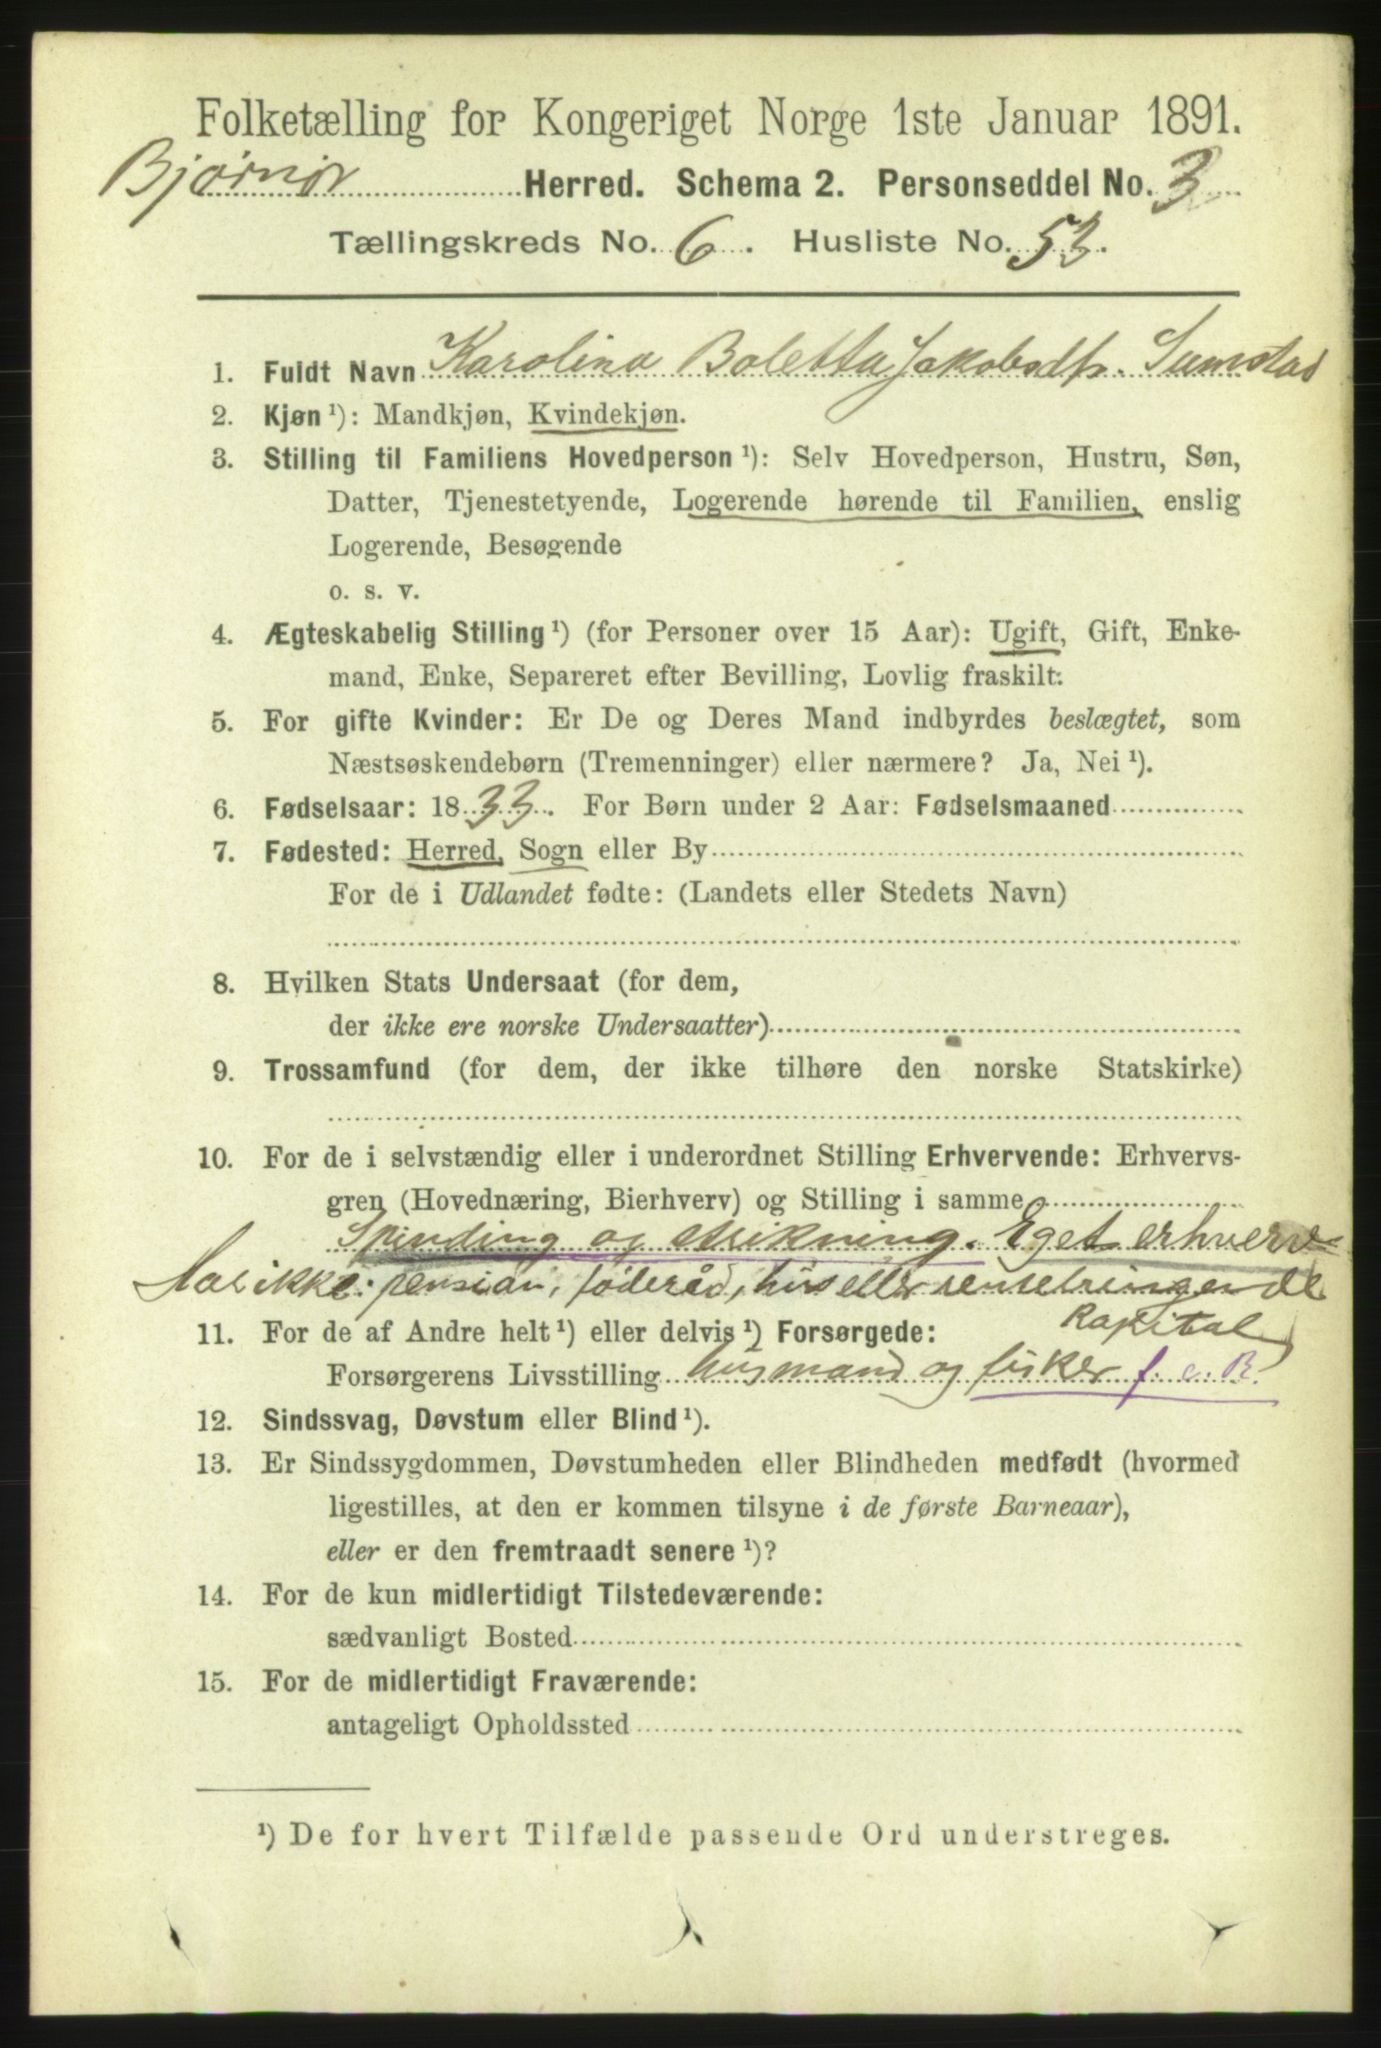 Folketælling for Kongeriget Norge 1ste Januar 1891.
Bjørnør Herred. Schema 2. Personseddel No. 3
Tællingskreds No. 6. Husliste No. 53.
1. Fuldt Navn Karolina Boletta Jakobsdtr. Sumstad
2. Kjøn ¹): Mandkjøn, Kvindekjøn.
3. Stilling til Familiens Hovedperson ¹): Selv Hovedperson, Hustru, Søn,
Datter, Tjenestetyende, Logerende hørende til Familien, enslig
Logerende, Besøgende
o. s. v.
4. Ægteskabelig Stilling ¹) (for Personer over 15 Aar): Ugift, Gift, Enke-
mand, Enke, Separeret efter Bevilling, Lovlig fraskilt.
5. For gifte Kvinder: Er De og Deres Mand indbyrdes beslægtet, som
Næstsøskendebørn (Tremenninger) eller nærmere? Ja, Nei ¹).
6. Fødselsaar: 1833. For Børn under 2 Aar: Fødselsmaaned
7. Fødested: Herred, Sogn eller By
For de i Udlandet fødte: (Landets eller Stedets Navn)
8. Hvilken Stats Undersaat (for dem,
der ikke ere norske Undersaatter)
9. Trossamfund (for dem, der ikke tilhøre den norske Statskirke)
10. For de i selvstændig eller i underordnet Stilling Erhvervende: Erhvervs-
gren (Hovednæring, Bierhverv) og Stilling i samme
Spinding og strikning. Eget erhverv
Har ikke pension, føderåd, hus eller rentebringende
Kapital
11. For de af Andre helt ¹) eller delvis ¹) Forsørgede:
Forsørgerens Livsstilling husmand og fisker f. e. B.
12. Sindssvag, Døvstum eller Blind ¹).
13. Er Sindssygdommen, Døvstumheden eller Blindheden medfødt (hvormed
ligestilles, at den er kommen tilsyne i de første Barneaar),
eller er den fremtraadt senere ¹)?
14. For de kun midlertidigt Tilstedeværende:
sædvanligt Bosted
15. For de midlertidigt Fraværende:
antageligt Opholdssted
¹) De for hvert Tilfælde passende Ord understreges.